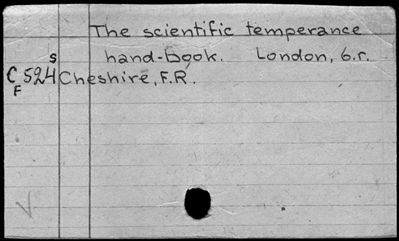 The scientific temperance
hand-book. London, б.г.
S
C 524 Cheshire, F.R.
F